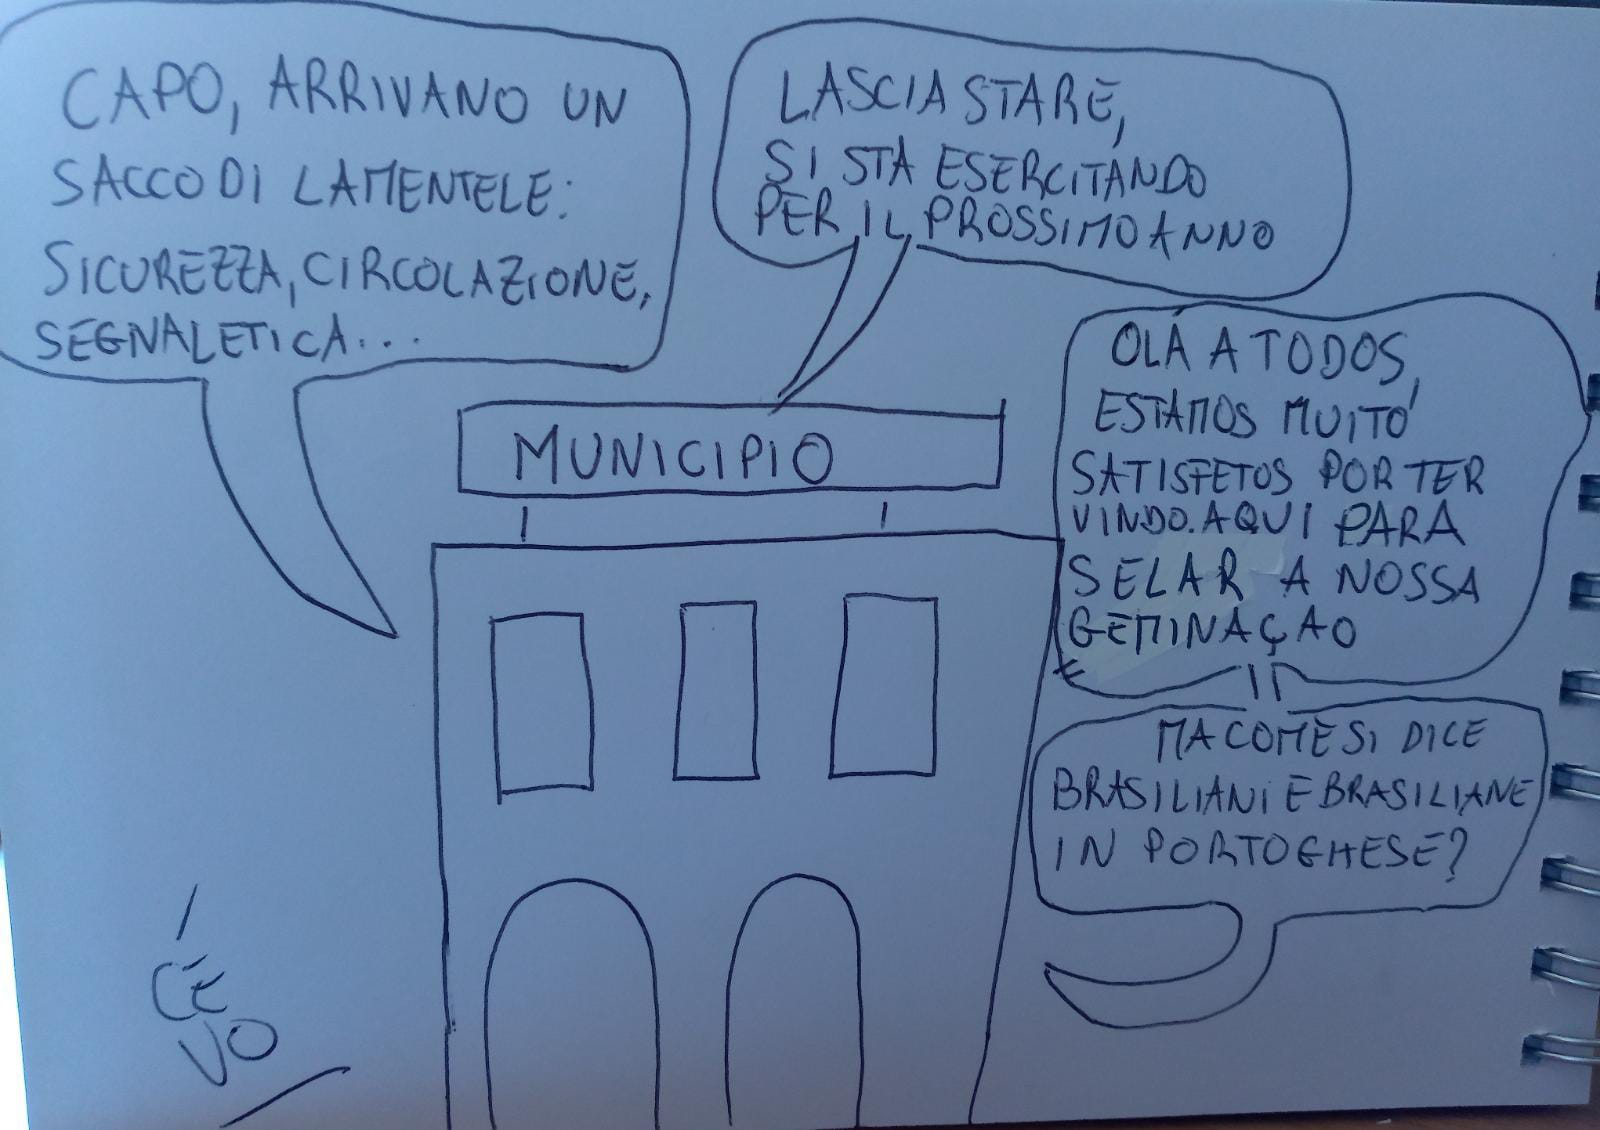 CAPO, ARRIVANO UN
SACCO DI LAMENTELE:
SICUREZZA, CIRCOLAZIONE,
SEGNALETICA...
LASCIA STARE,
SI STA ESERCITANDO
PER IL PROSSIMO ANNO
MUNICIPIO
OLÁ A TODOS,
ESTAMOS MUITO
SATISFETOS POR TER
VINDO.AQUI PARA
SELAR A NOSSA
GEMINAÇAO
MA COME SI DICE
BRASILIANI E BRASILIANE
IN PORTOGHESE?
CE
VO